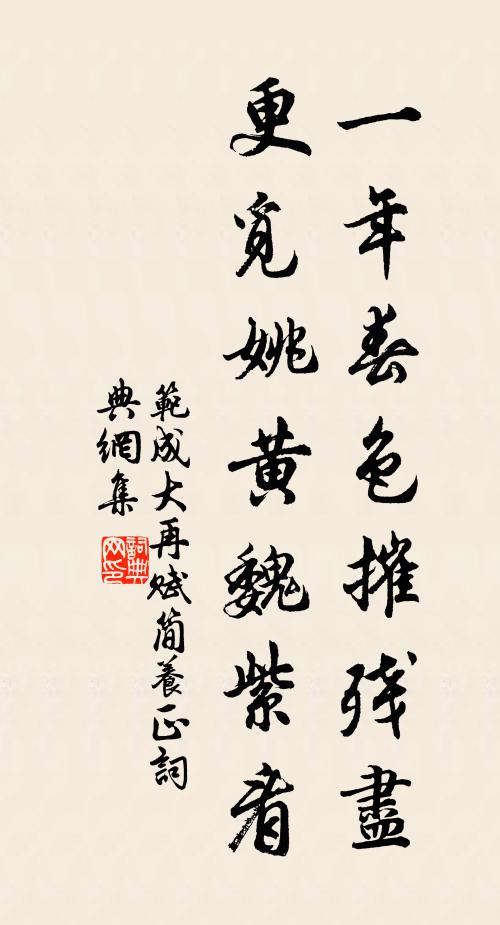 一年春色摧残盡
更覓姚黄魏紫看
範成大再赋简養正詞
典網集
詞典網印